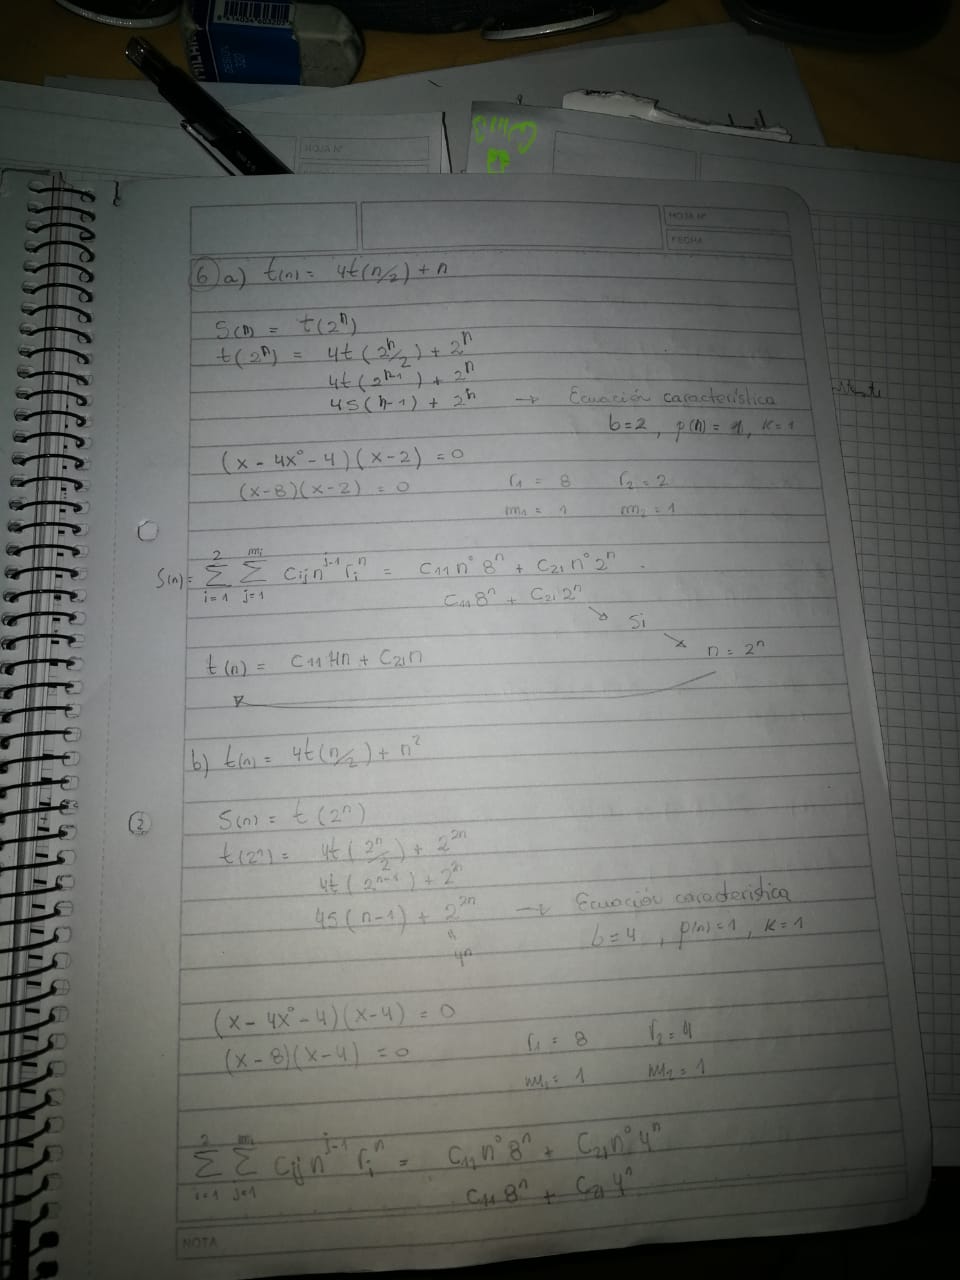 MILAN
8414034603203
DESIGN
320
HOJA Nº
HOJA Nº
FECHA
6 a) t(n) = 4t(n/2) + n
S(n) = t(2ⁿ)
t(2ⁿ) = 4t(2ⁿ/2) + 2ⁿ
4t(2ⁿ⁻¹) + 2ⁿ
4S(n-1) + 2ⁿ → Ecuación característica
b=2, p(n)=1, k=1
(x - 4x⁰ - 4)(x-2) = 0
(x-8)(x-2) = 0 r₁ = 8 r₂ = 2
m₁ = 1 m₂ = 1
S(n) = 2 Σ i=1 mi Σ j=1 Cij n^(j-1) riⁿ = C₁₁n⁰8ⁿ + C₂₁n⁰2ⁿ.
C₁₁8ⁿ + C₂₁2ⁿ
Si
n = 2ⁿ
t(n) = C₁₁4n + C₂₁n
b) t(n) = 4t(n/2) + n²
2
S(n) = t(2ⁿ)
t(2ⁿ) = 4t(2ⁿ/2) + 2²ⁿ
4t(2ⁿ⁻¹) + 2²ⁿ
4S(n-1) + 2²ⁿ → Ecuación característica
b=4, p(n)=1, k=1
4ⁿ
(x - 4x⁰ - 4)(x-4) = 0
(x-8)(x-4) = 0 r₁ = 8 r₂ = 4
m₁ = 1 m₂ = 1
2 Σ i=1 mi Σ j=1 Cij n^(j-1) riⁿ = C₁₁n⁰8ⁿ + C₂₁n⁰4ⁿ
C₁₁8ⁿ + C₂₁4ⁿ
NOTA